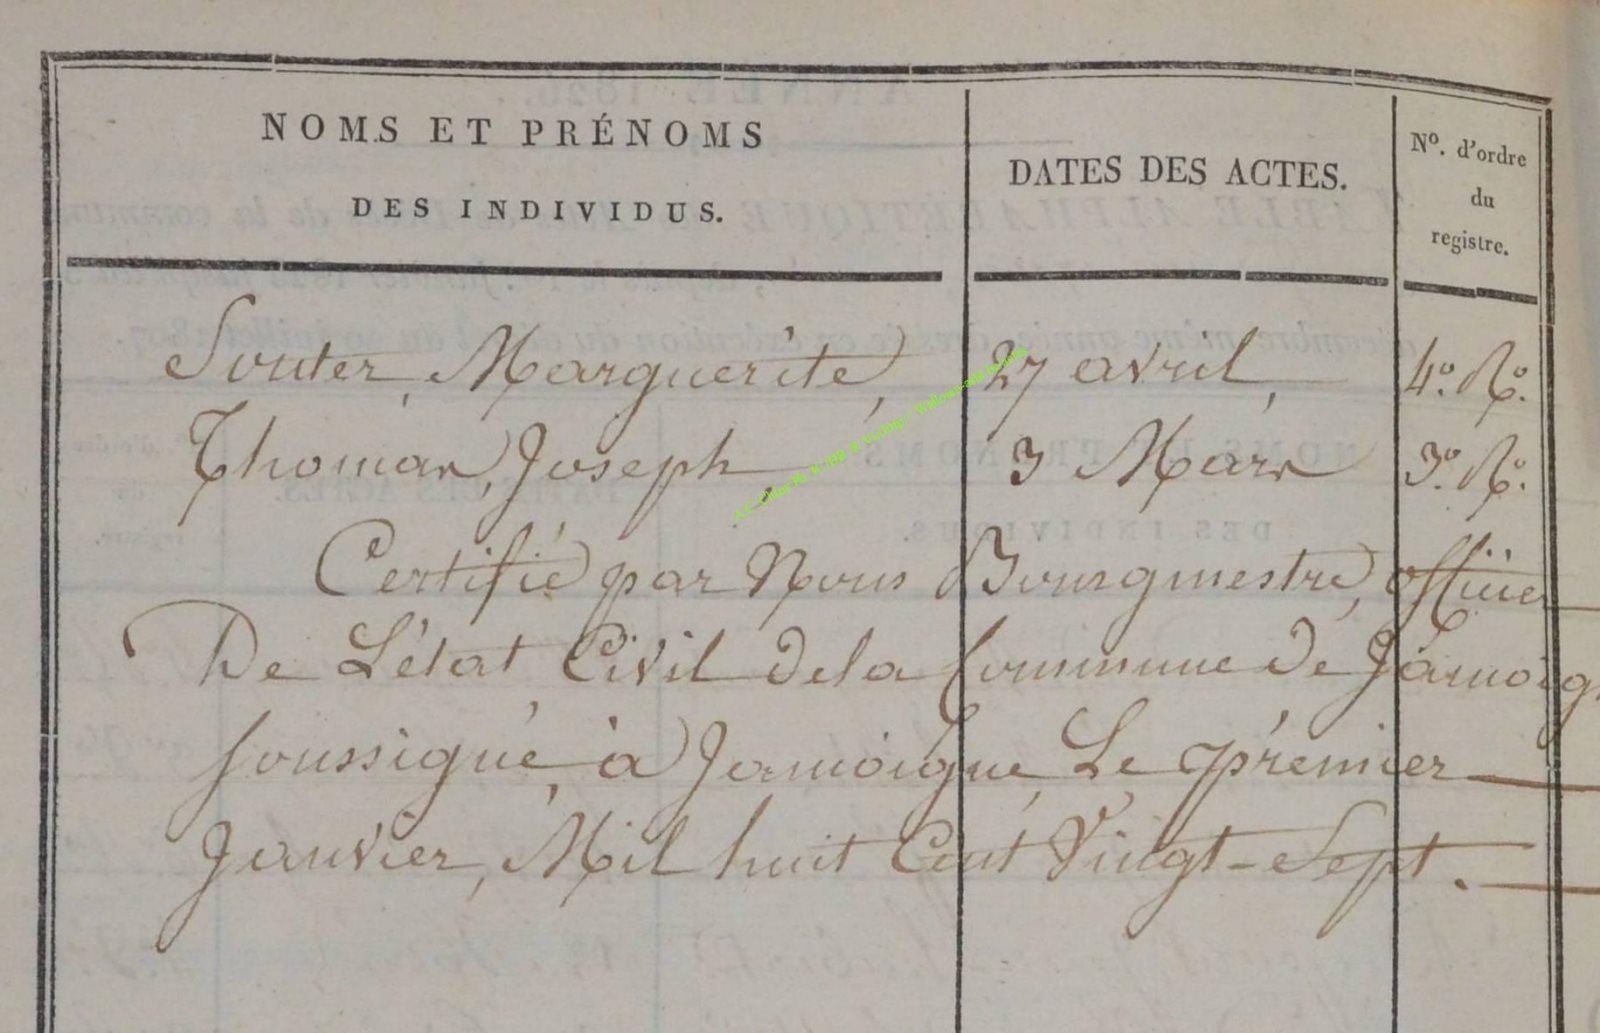 NOMS ET PRÉNOMS
DES INDIVIDUS.
DATES DES ACTES.
Nº. d'ordre
du
registre.
Souter, Marguerite, 27 avril, 4º. Rº.
Thomas, Joseph, 3 Mars 3º. Rº.
Certifié par Nous Bourgmestre, officier
De L'état Civil de la Commune de Jamoig
soussigné, à Jamoigne, Le premier
Janvier, Mil huit Cent Vingt-Sept.